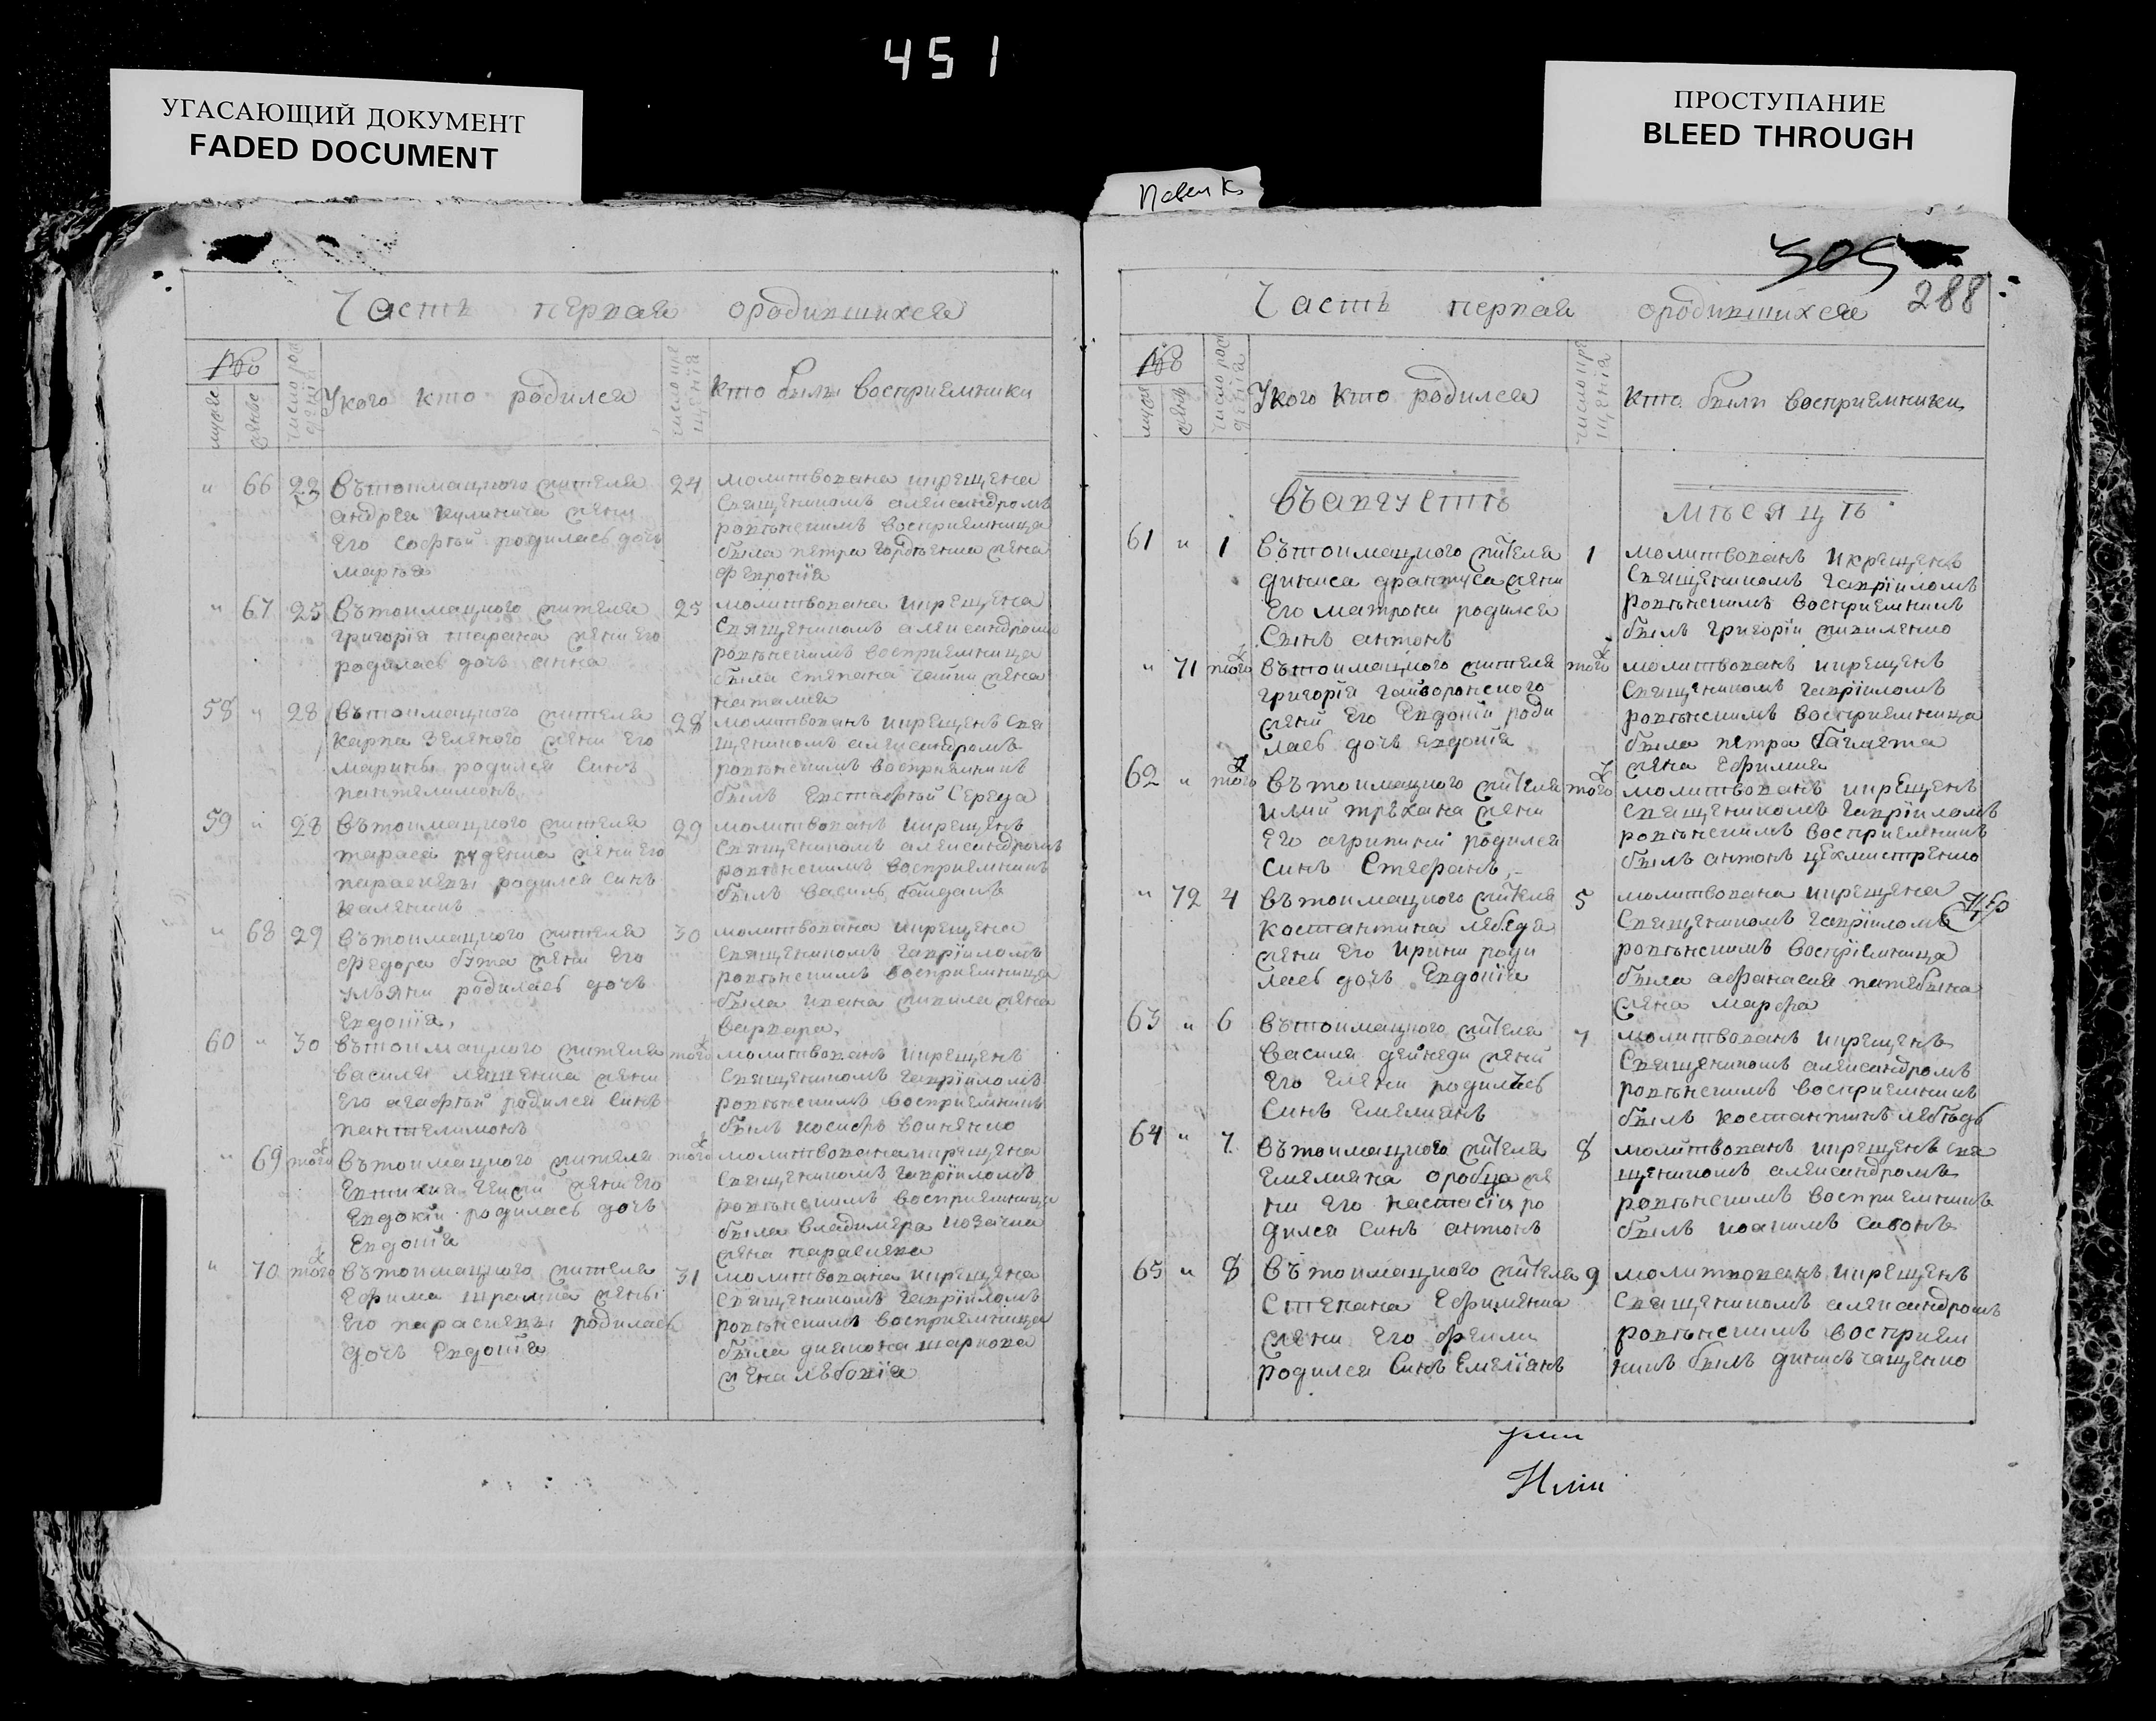 451
УГАСАЮЩИЙ ДОКУМЕНТ
FADED DOCUMENT
ПРОСТУПАНИЕ
BLEED THROUGH
305
288
Часть первая ородившихся
№
число рож
дения
Укого кто родился
число кре
щения
кто были восприемники
" 66 23
Вътоимацкого жителя
андрея кулинича жени
Его Софѣи родилась дочь
марѣя
24
молитвована икрещена
Священикомъ александромъ
восприемница
была петра гордѣенка жена
Феврония
" 67 25
Вътоимацкого жителя
григорія тарана жени его
родилась дочь анна
25
молитвована икрещена
Священикомъ александромъ
восприемница
была степана жена
наталия
58 " 28
Вътоимацкого жителя
карпа Зеленого жени Его
марины родился Синъ
пантелимонъ
28
молитвованъ икрещенъ Свя
щеникомъ александромъ
восприемникъ
былъ Евстафѣй Середа
59 " 28
Вътоимацкого жителя
тараса руденка жени Его
параскевы родился Синъ
каленикъ
29
молитвованъ икрещенъ
Священикомъ александромъ
восприемникъ
былъ василь байдакъ
" 68 29
Вътоимацкого жителя
Федора бута жени Его
ульяни родилась дочь
Евдокія,
30
молитвована икрещена
Священикомъ гавріиломъ
восприемница
была ивана жена
варвара,
60 " 30
Вътоимацкого жителя
василя ляшенка жени
Его агафѣи родился Синъ
пантелимонъ
того
молитвованъ икрещенъ
Священикомъ гавріиломъ
восприемникъ
былъ иосифъ воиненко
" 69 того
Вътоимацкого жителя
жени Его
Евдокіи родилась дочь
Евдокія
того
молитвована икрещена
Священикомъ гавріиломъ
восприемница
была владимера козачка
жена параскева
" 70 того
Вътоимацкого жителя
Ефима жены
Его параскевы родилась
дочь Евдокія
31
молитвована икрещена
Священикомъ гавріиломъ
восприемница
была диякона маркова
жена любовія
Часть первая ородившихся
№
число рож
дения
Укого кто родился
число кре
щения
кто были восприемники
Въавгустѣ
мѣсяцѣ
61 " 1
Вътоимацкого жителя
диниса жени
Его матрони родился
Сынъ антонъ
1
молитвованъ икрещенъ
Священикомъ гавріиломъ
восприемникъ
былъ григоріи
" 71 того
Вътоимацкого жителя
григорія гайворонского
жени Его Евдокіи роди
лась дочь евдокія
того
молитвованъ икрещенъ
Священикомъ гавріиломъ
восприемница
была петра багмета
жена Ефимия
62 " того
Вътоимацкого жителя
илии трѣхана жени
Его агрипини родился
Синъ Стефанъ,
того
молитвованъ икрещенъ
Священикомъ гавріиломъ
восприемникъ
былъ антонъ цехмистренко
" 72 4
Вътоимацкого жителя
костантина лебедя
жени Его ирини роди
лась дочь Евдокія
5
молитвована икрещена
Священикомъ гавріиломъ
воспріемница
была афанасия
жена марфа
63 " 6
Вътоимацкого жителя
василя дейнеди жени
Его Елени родилась
Синъ Емелианъ
7
молитвованъ икрещенъ
Священикомъ александромъ
восприемникъ
былъ костантинъ лебѣдь
64 " 7
Вътоимацкого жителя
Емелияна оробца же
ни Его настасіи ро
дился Синъ антонъ
8
молитвованъ икрещенъ Свя
щеникомъ александромъ
восприемникъ
былъ иоакимъ Савонъ
65 " 8
Вътоимацкого жителя
Степана Ефименка
жени Его феклы
родился Синъ Емеліянъ
9
молитвованъ икрещенъ
Священикомъ александромъ
восприем
никъ былъ динисъ гащенко